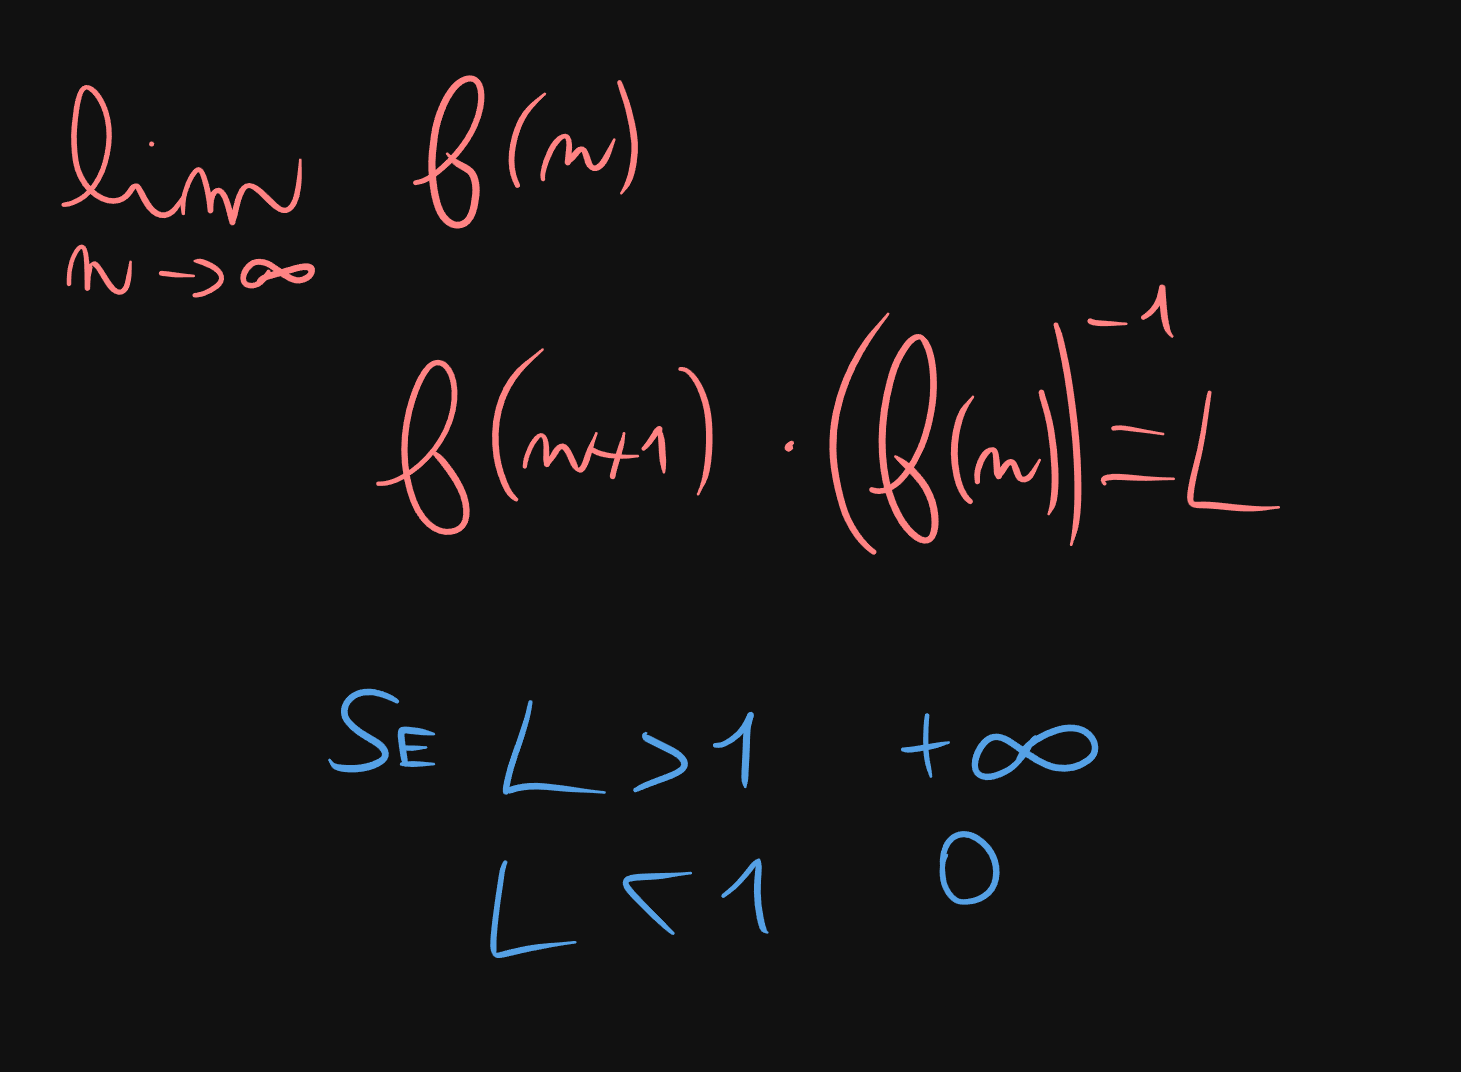 lim f(n)
n → ∞
f(n+1) · (f(n))⁻¹ = L
SE L > 1 +∞
L < 1 0